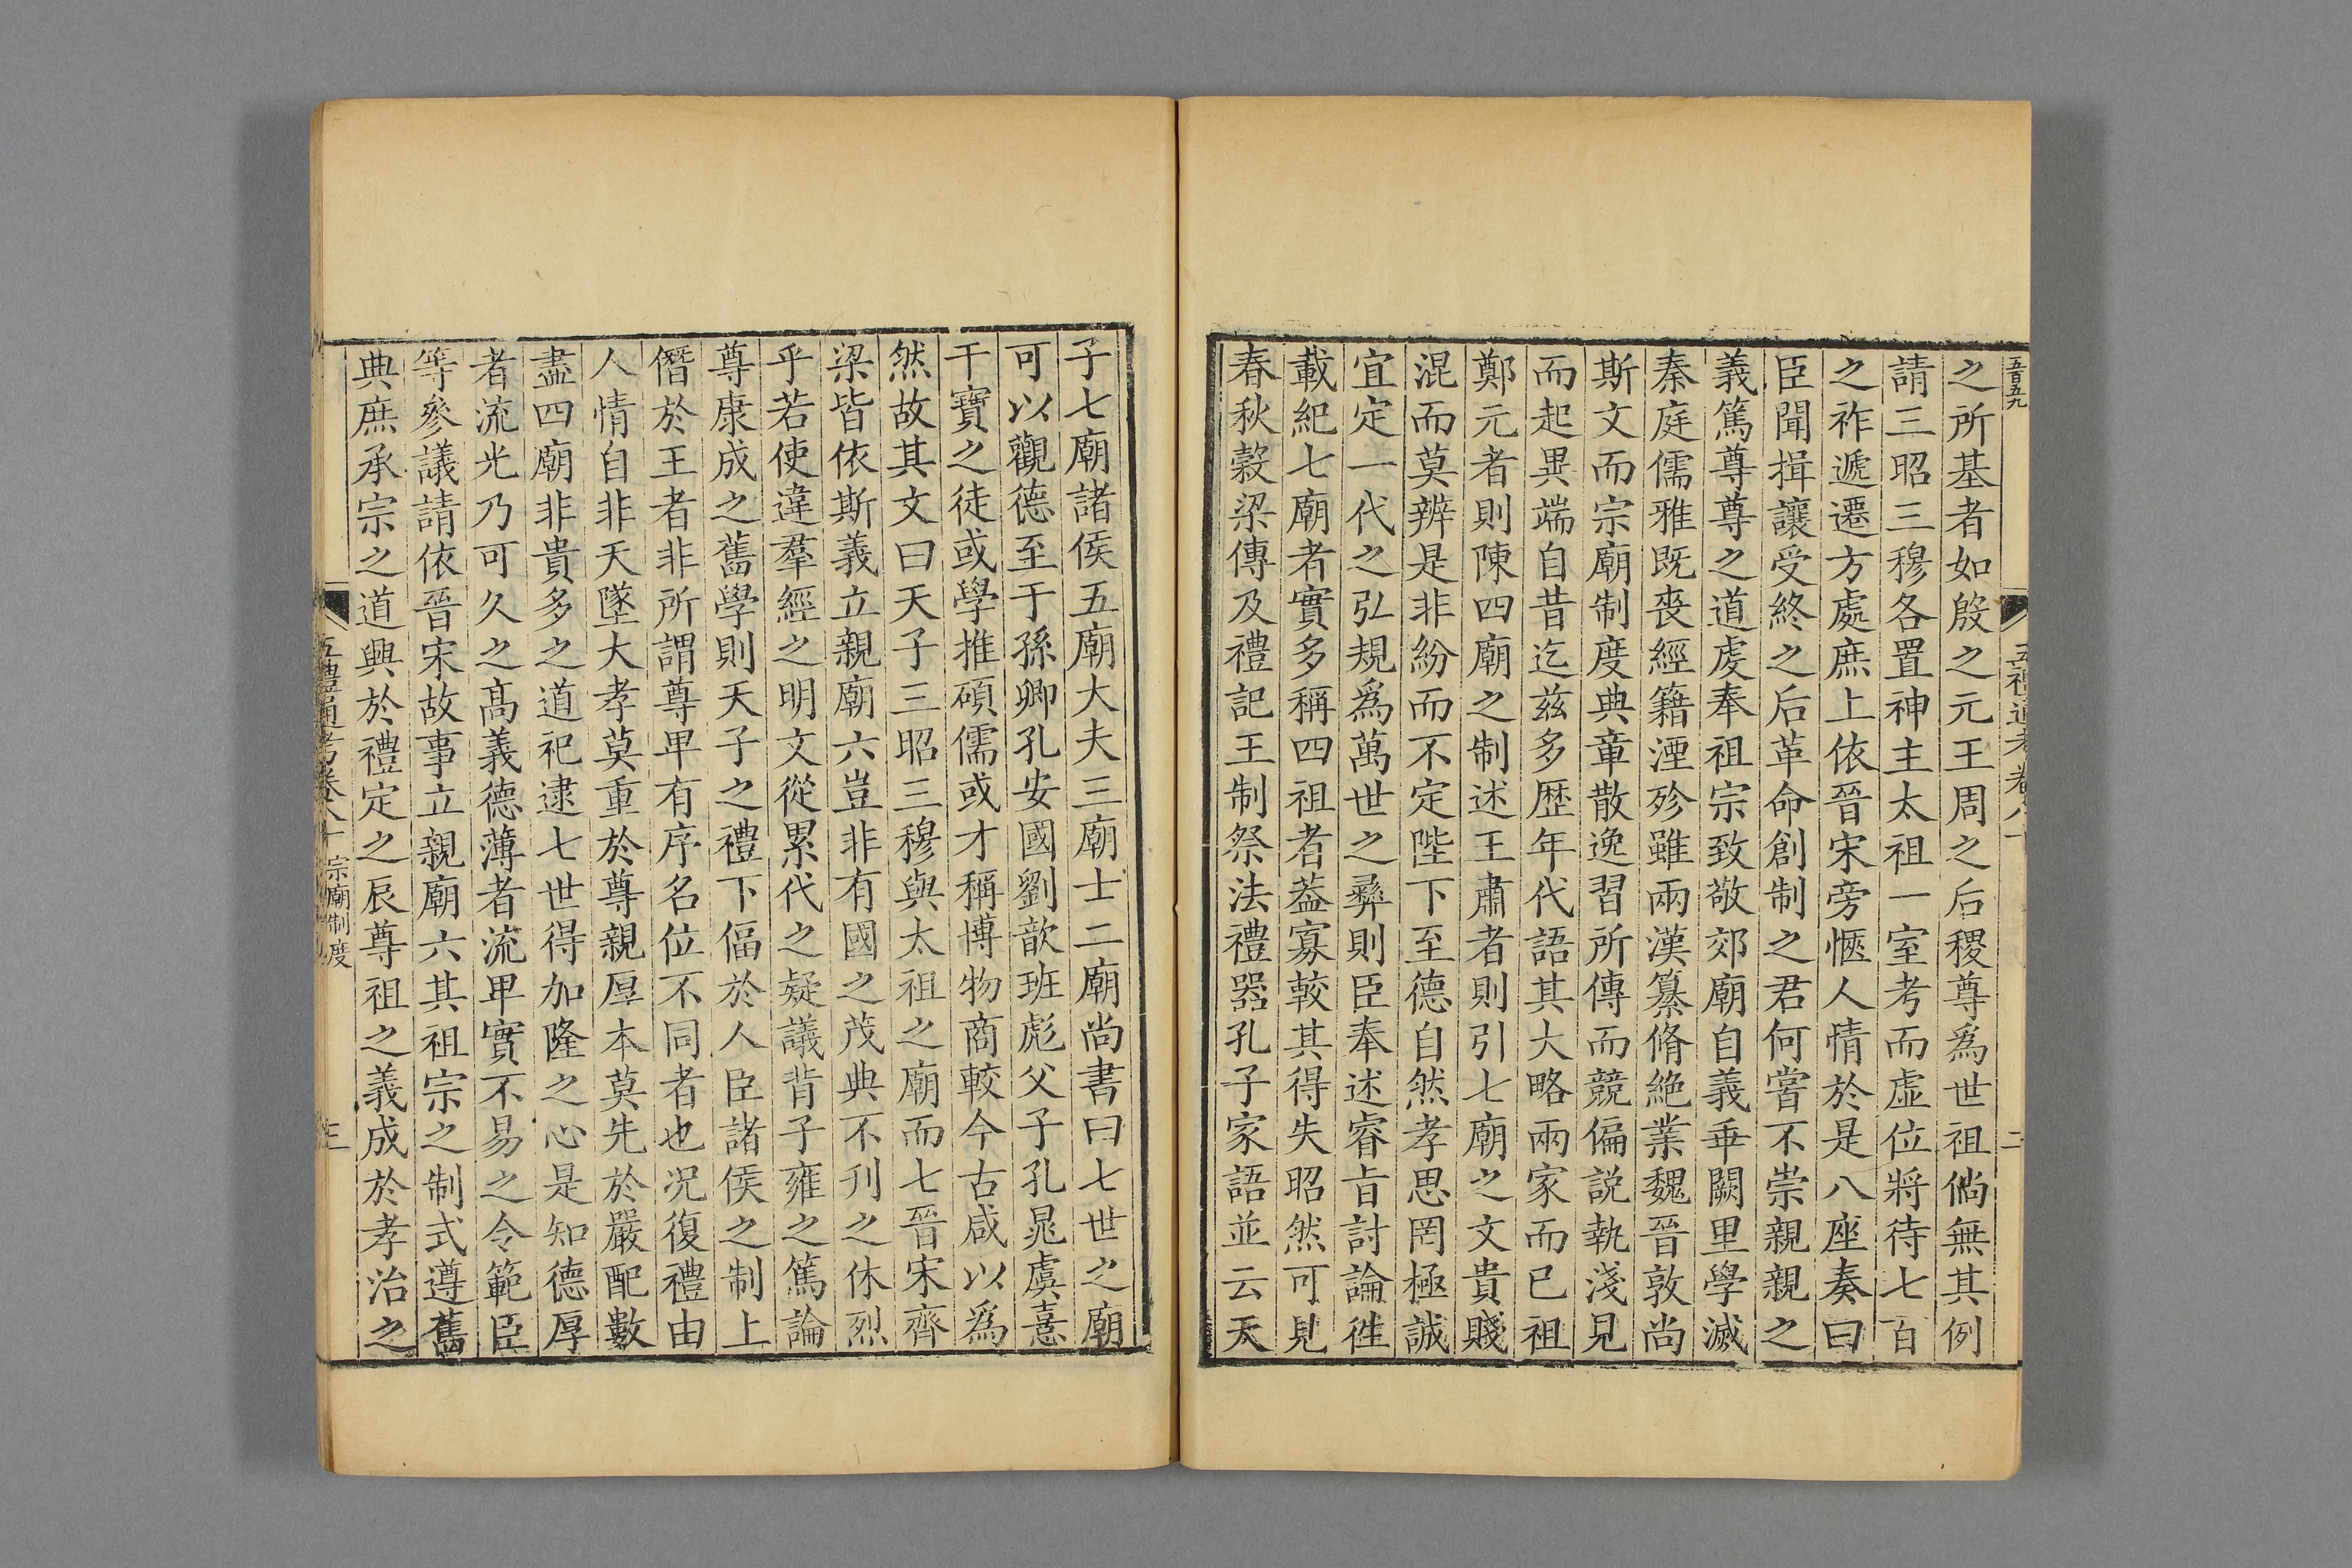 五百五九
五禮通考卷八十
二
之所基者如殷之元王周之后稷尊爲世祖倘無其例
請三昭三穆各置神主太祖一室考而虛位將待七百
之祚遞遷方處庶上依晉宋旁愜人情於是八座奏曰
臣聞揖讓受終之后革命創制之君何嘗不崇親親之
義篤尊尊之道虔奉祖宗致敬郊廟自義乖闕里學滅
秦庭儒雅既喪經籍湮殄雖兩漢纂脩絶業魏晉敦尚
斯文而宗廟制度典章散逸習所傳而競偏説執淺見
而起異端自昔迄兹多歴年代語其大略兩家而已祖
鄭元者則陳四廟之制述王肅者則引七廟之文貴賤
混而莫辨是非紛而不定陛下至德自然孝思罔極誠
宜定一代之弘規爲萬世之彞則臣奉述睿旨討論徃
載紀七廟者實多稱四祖者葢寡較其得失昭然可見
春秋穀梁傳及禮記王制祭法禮器孔子家語並云天
子七廟諸侯五廟大夫三廟士二廟尚書曰七世之廟
可以觀德至于孫卿孔安國劉歆班彪父子孔晁虞憙
干寶之徒或學推碩儒或才稱博物商較今古咸以爲
然故其文曰天子三昭三穆與太祖之廟而七晉宋齊
梁皆依斯義立親廟六豈非有國之茂典不刋之休烈
乎若使違羣經之明文從累代之疑議背子雍之篤論
尊康成之舊學則天子之禮下偪於人臣諸侯之制上
僭於王者非所謂尊卑有序名位不同者也况復禮由
人情自非天墜大孝莫重於尊親厚本莫先於嚴配數
盡四廟非貴多之道祀逮七世得加隆之心是知德厚
者流光乃可久之髙義德薄者流卑實不易之令範臣
等參議請依晉宋故事立親廟六其祖宗之制式遵舊
典庶承宗之道興於禮定之辰尊祖之義成於孝治之
五禮通考卷八十　宗廟制度
三